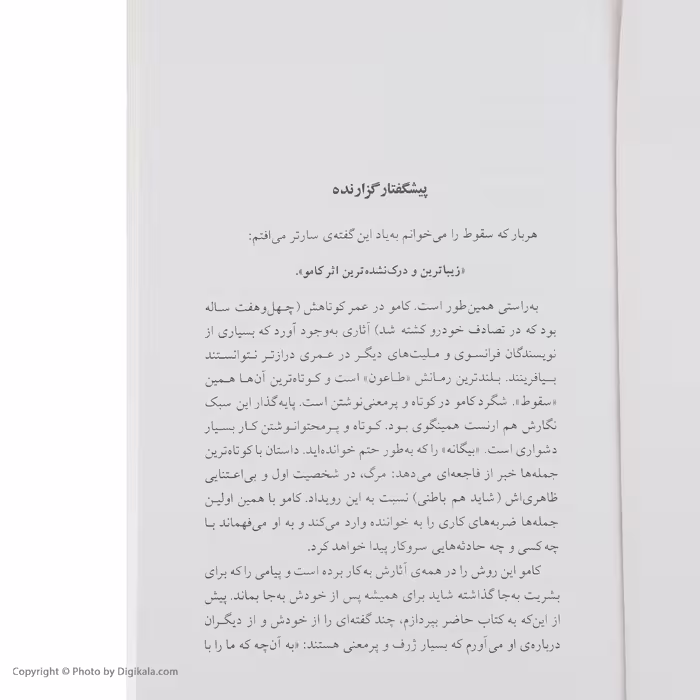 پیشگفتار گزارنده
هربار که سقوط را می‌خوانم به‌یاد این گفته‌ی سارتر می‌افتم:
«زیباترین و درک‌نشده‌ترین اثر کامو».
به‌راستی همین‌طور است. کامو در عمر کوتاهش (چهل‌وهفت ساله
بود که در تصادف خودرو کشته شد) آثاری به‌وجود آورد که بسیاری از
نویسندگان فرانسوی و ملیت‌های دیگر در عمری درازتر نتوانستند
بیافرینند. بلندترین رمانش «طاعون» است و کوتاه‌ترین آن‌ها همین
«سقوط». شگرد کامو در کوتاه و پرمعنی‌نوشتن است. پایه‌گذار این سبک
نگارش هم ارنست همینگوی بود. کوتاه و پرمحتوانوشتن کار بسیار
دشواری است. «بیگانه» را که به‌طور حتم خوانده‌اید. داستان با کوتاه‌ترین
جمله‌ها خبر از فاجعه‌ای می‌دهد: مرگ، در شخصیت اول و بی‌اعتنایی
ظاهری‌اش (شاید هم باطنی) نسبت به این رویداد. کامو با همین اولین
جمله‌ها ضربه‌های کاری را به خواننده وارد می‌کند و به او می‌فهماند با
چه کسی و چه حادثه‌هایی سروکار پیدا خواهد کرد.
کامو این روش را در همه‌ی آثارش به‌کار برده است و پیامی را که برای
بشریت به‌جا گذاشته شاید برای همیشه پس از خودش به‌جا بماند. پیش
از این‌که به کتاب حاضر بپردازم، چند گفته‌ای را از خودش و از دیگران
درباره‌ی او می‌آورم که بسیار ژرف و پرمعنی هستند: «به آن‌چه که ما را با
Copyright © Photo by Digikala.com